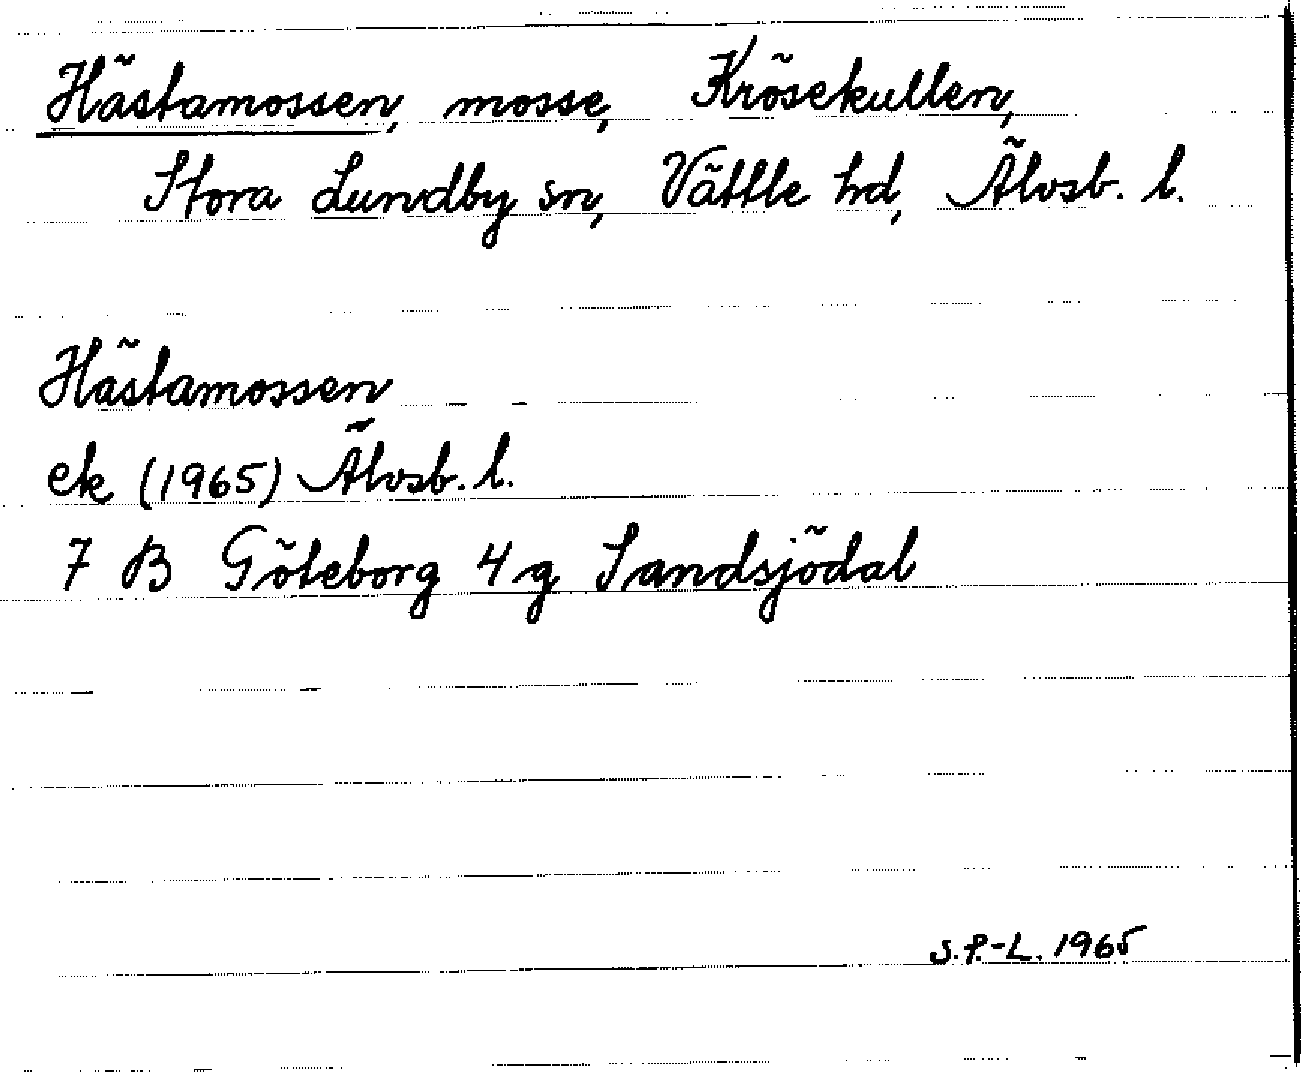 Hästamossen, mosse, Krösekullen,
Stora Lundby sn, Vättle hd, Älvsb. l.
Hästamossen
ek (1965) Älvsb. l.
7 B Göteborg 4 g Sandsjödal
S.P.-L. 1965